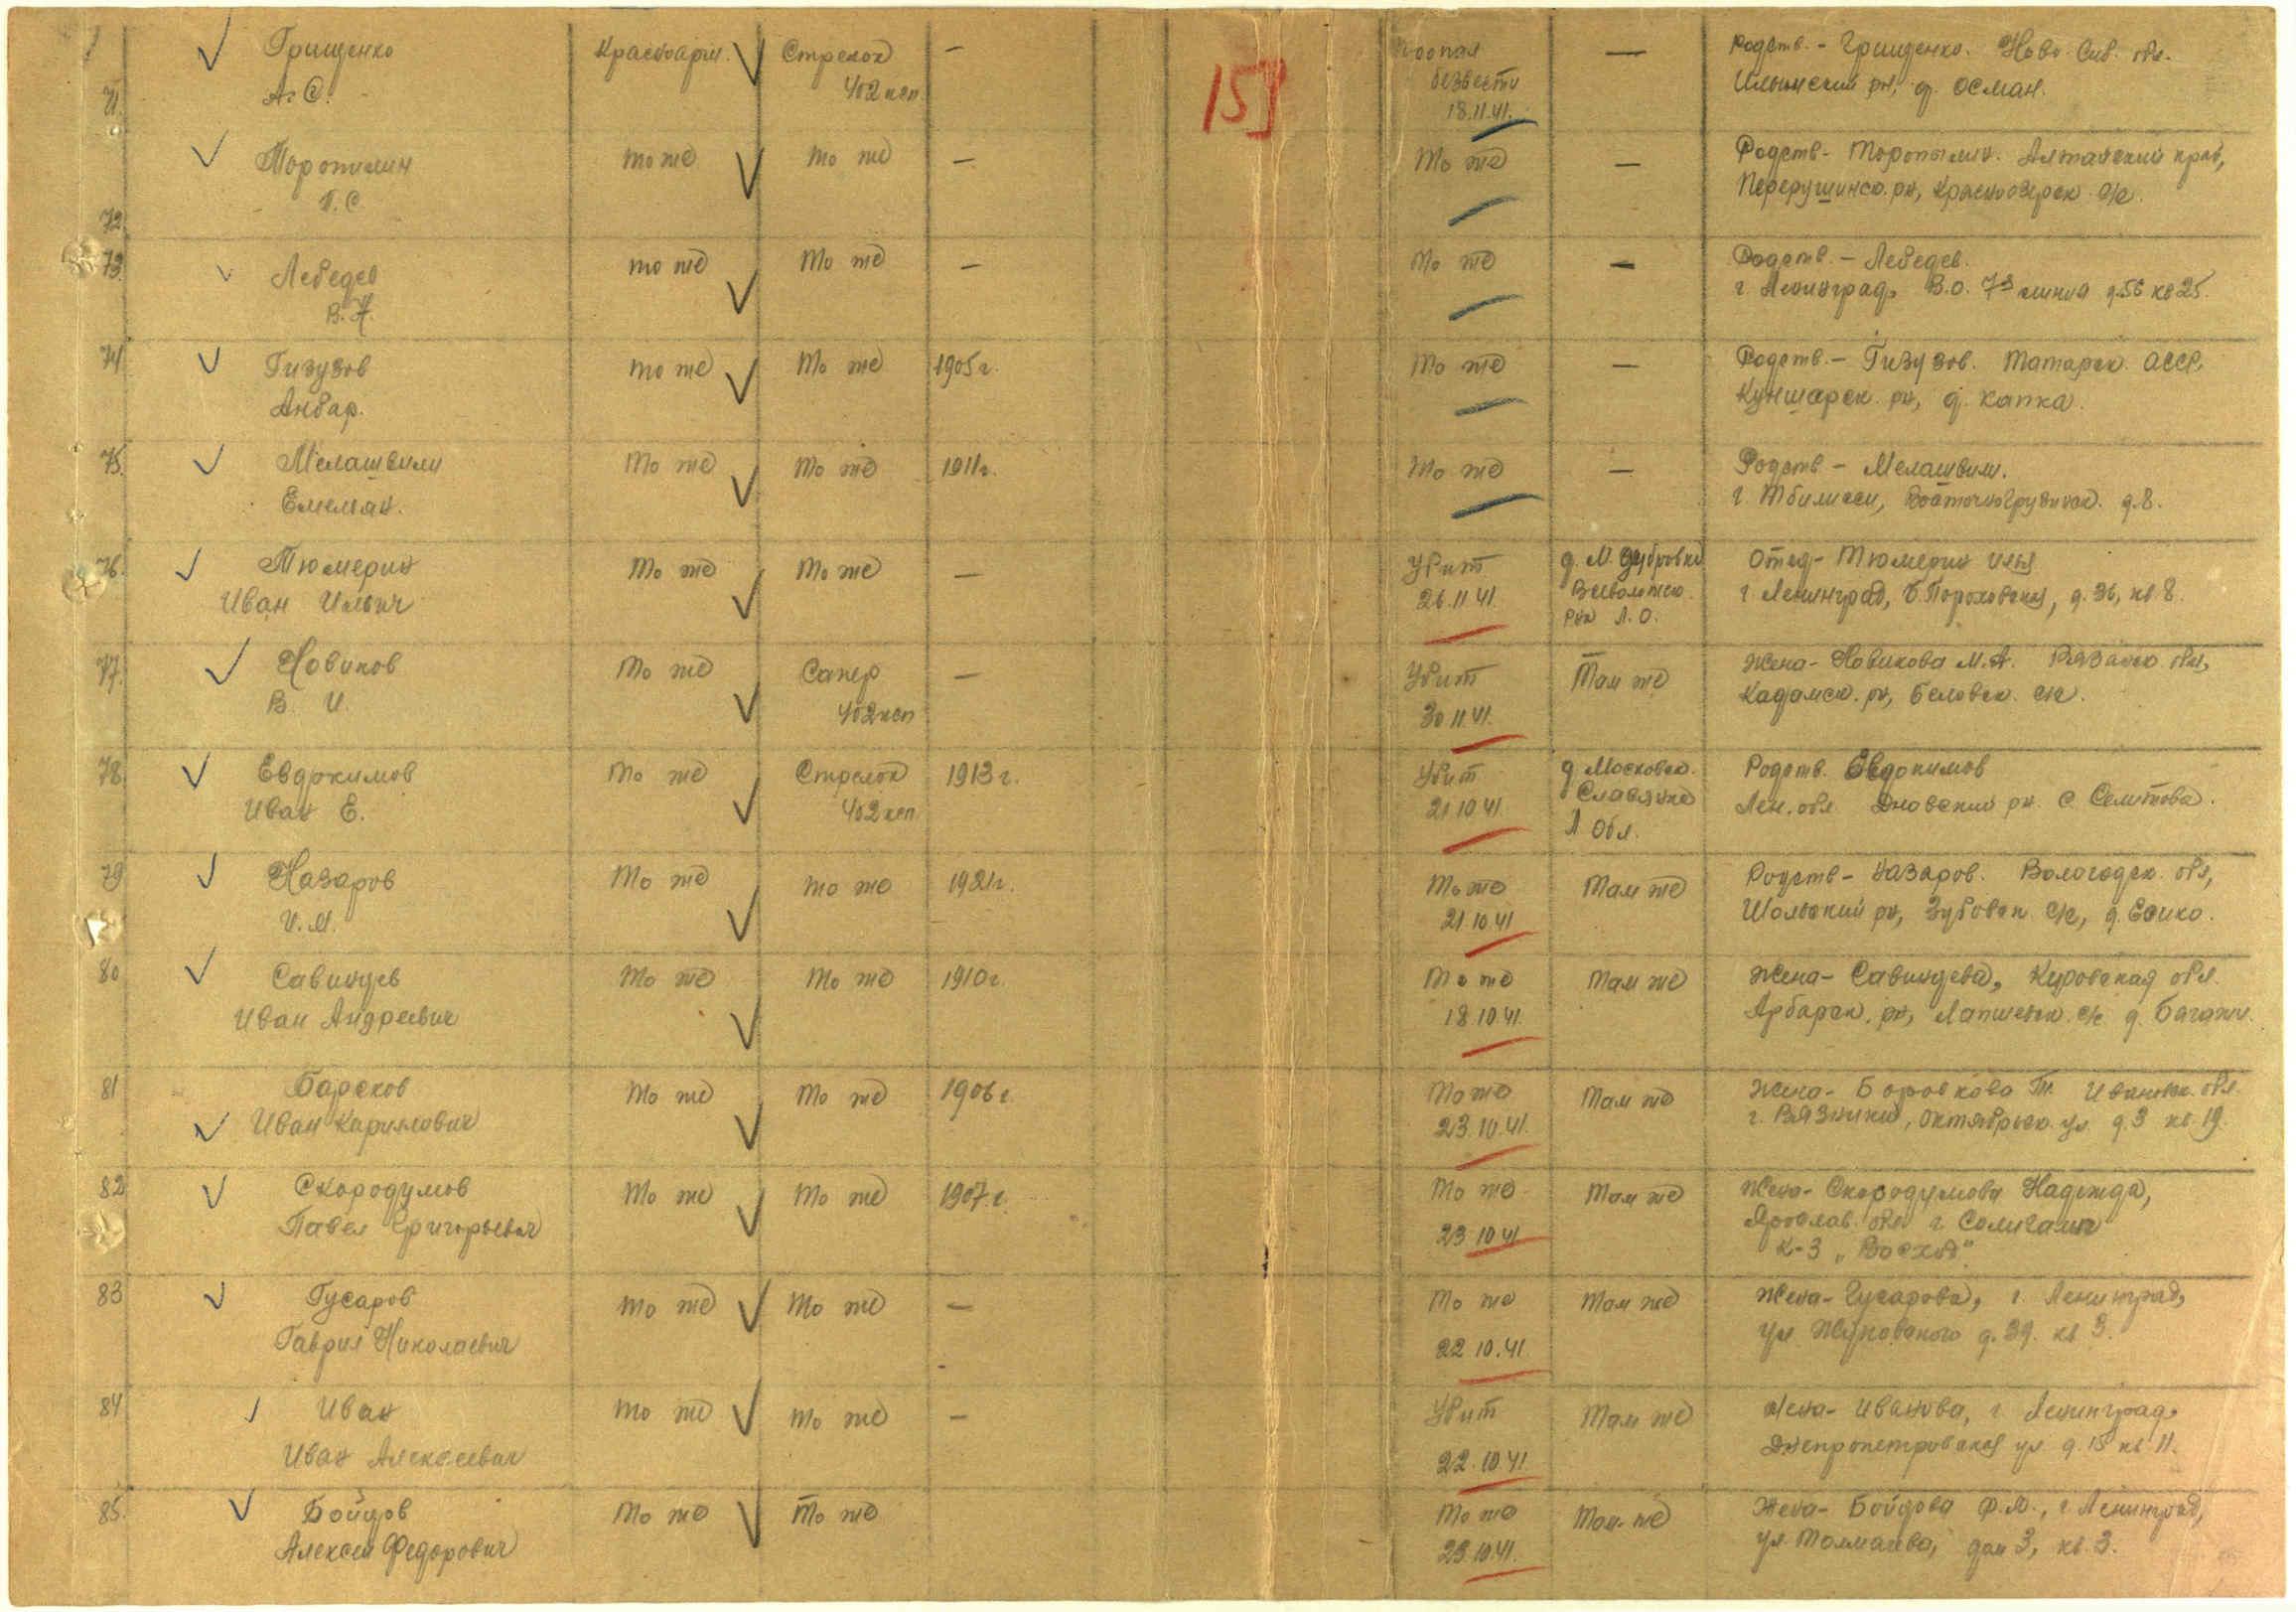 71. Грищенко Красноарм. Стрелок — Пропал — Родств. - Грищенко. Ново-Сиб. обл.
А. С. 402 ксп безвести Ильинский рн, д. Осман.
18.11.41.
15
Торопилин то же то же — то же — Родств - Торопылин. Алтайский край,
72. П. С. рн, Красноозерск с/с.
73. Лебедев то же то же — то же — Родств. - Лебедев.
В. г. Ленинград, В.О. 7я линия д.56 кв 25.
74 Гизузов то же то же 1905 г. то же — Родств. - Гизузов. Татарск. АССР,
Анвар. рн, д. Капка.
75. Мелашвили то же то же 1911 г. то же — Родств - Мелашвили.
Емельян. г. Тбилиси, д. 8.
76. Тюмерин то же то же — Убит д. М. Дубровка Отец - Тюмерин Илья
Иван Ильич 26.11.41. Всеволожск. г. Ленинград, Б. Пороховская, д. 36, кв 8.
рн Л.О.
77. Новиков то же Сапер — Убит Там же Жена - Новикова М.А. Рязанск. обл,
В. И. 402 ксп 30.11.41. Кадомск. рн, Беловск. с/с.
78. Евдокимов то же Стрелок 1913 г. Убит д Московск. Родств. Евдокимов
Иван Е. 402 ксп 21.10.41. Славянка Лен. обл. Дновский рн. с.
Л Обл.
79 Назаров то же то же 1921 г. то же Там же Родств - Назаров. Вологодск. обл,
И. М. 21.10.41 Шольский рн, Зубовск с/с, д.
80 Савинцев то же то же 1910 г. то же Там же Жена - Савинцева, Кировская обл.
Иван Андреевич 18.10.41. Арбажск. рн, с/с д.
81 Барсков то же то же 1906 г. то же Там же Жена - Боровкова Т. Ивановск. обл.
Иван Каримович 23.10.41. г. Вязники, Октябрьск. ул д. 3 кв. 19.
82 Скородумов то же то же 1907 г. то же Там же Жена - Скородумова Надежда,
Павел Григорьевич 23.10.41 Ярослав. обл г Солигалич
к-з „Восход".
83 Гусаров то же то же — то же Там же Жена - Гусарова, г. Ленинград,
Гаврил Николаевич 22.10.41. ул Жуковского д. 39. кв 3.
84 Иван то же то же — Убит Там же Жена - Иванова, г Ленинград,
Иван Алексеевич 22.10.41 Днепропетровская ул д. 15 кв 11.
85. Бойцов то же то же то же Там же Жена - Бойцова Ф.М., г. Ленинград,
Алексей Федорович 23.10.41. ул. Толмачева, дом 3, кв. 3.